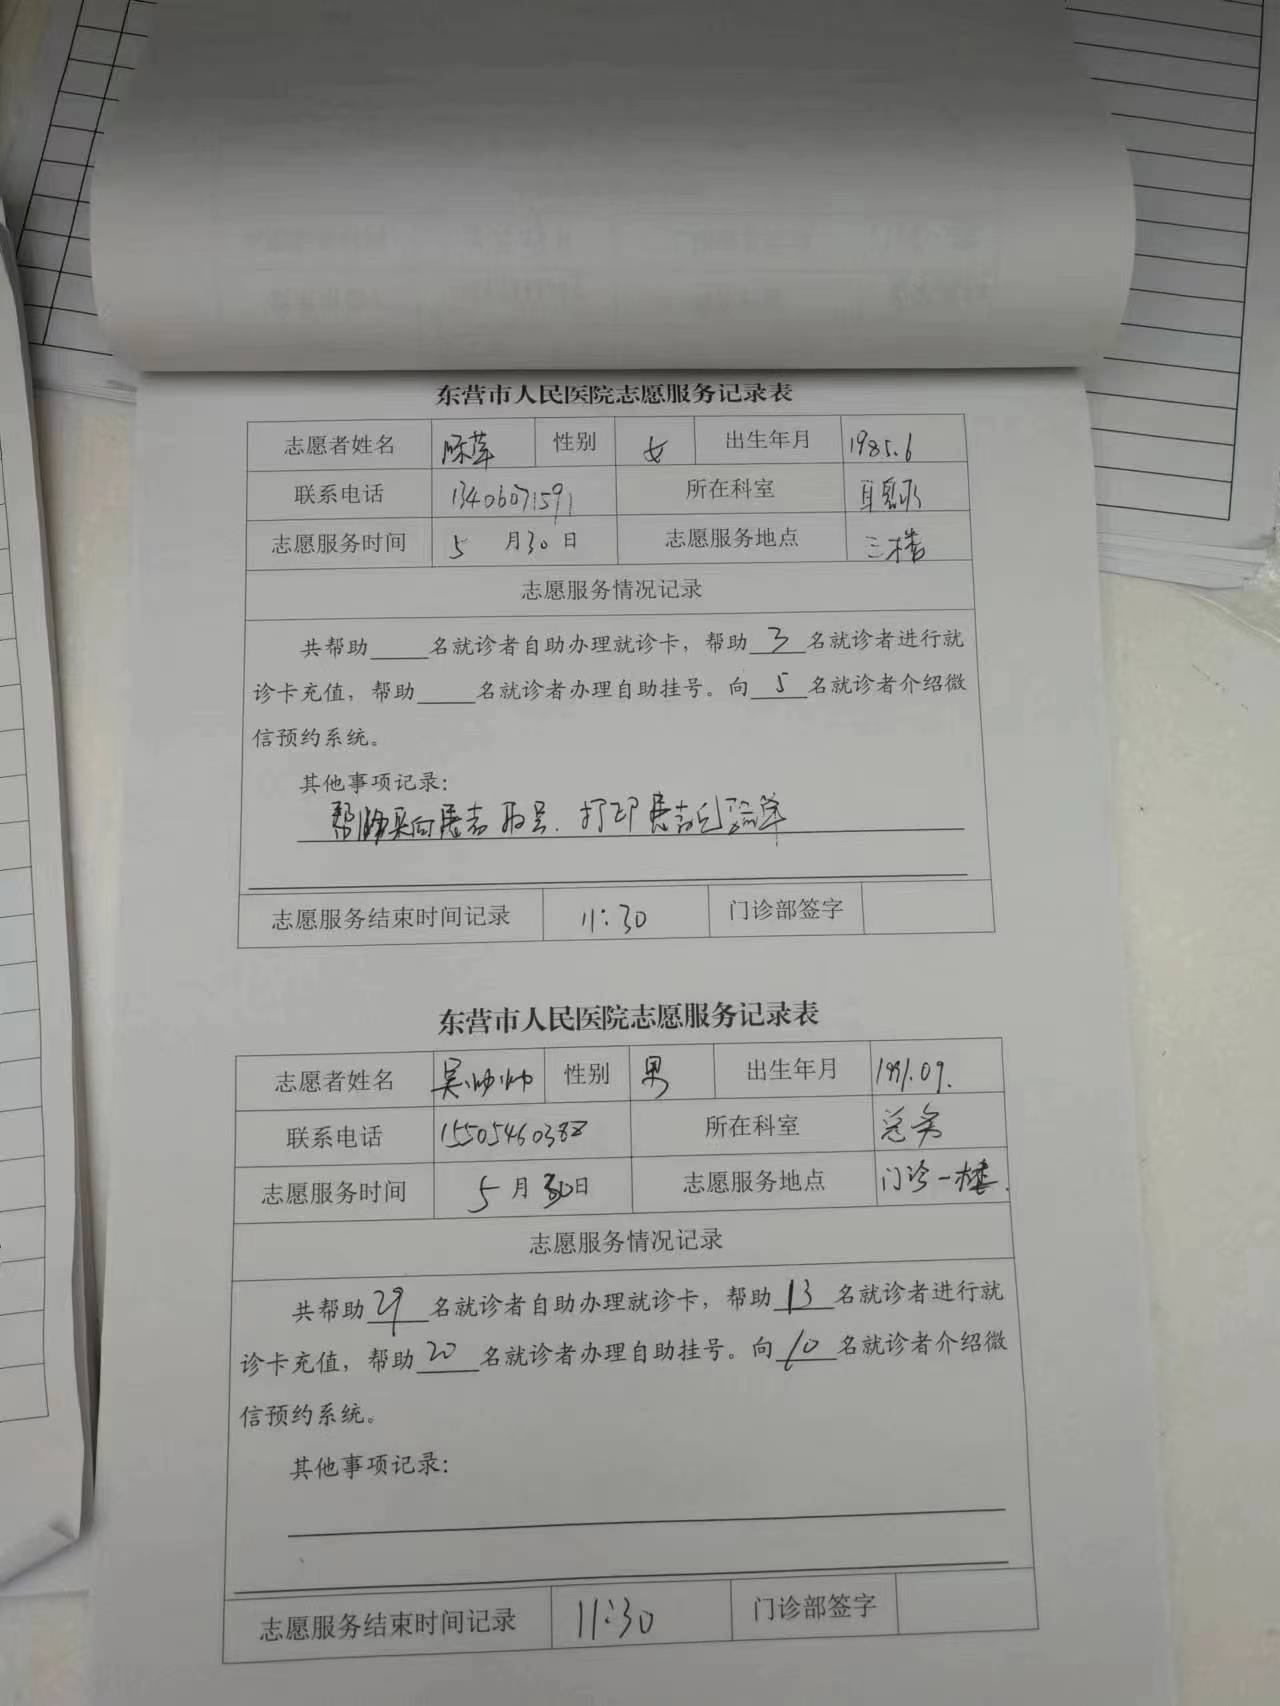 东营市人民医院志愿服务记录表
志愿者姓名 陈萍 性别 女 出生年月 1985.6
联系电话 13406071591 所在科室
志愿服务时间 5 月 30 日 志愿服务地点 三楼
志愿服务情况记录
共帮助____名就诊者自助办理就诊卡，帮助 3 名就诊者进行就
诊卡充值，帮助____名就诊者办理自助挂号。向 5 名就诊者介绍微
信预约系统。
其他事项记录：
患者取号、打印患者化验单
志愿服务结束时间记录 11:30 门诊部签字
东营市人民医院志愿服务记录表
志愿者姓名 吴帅帅 性别 男 出生年月 1991.09.
联系电话 15505460388 所在科室 总务
志愿服务时间 5 月 30 日 志愿服务地点 门诊一楼.
志愿服务情况记录
共帮助 29 名就诊者自助办理就诊卡，帮助 13 名就诊者进行就
诊卡充值，帮助 20 名就诊者办理自助挂号。向 10 名就诊者介绍微
信预约系统。
其他事项记录：
志愿服务结束时间记录 11:30 门诊部签字